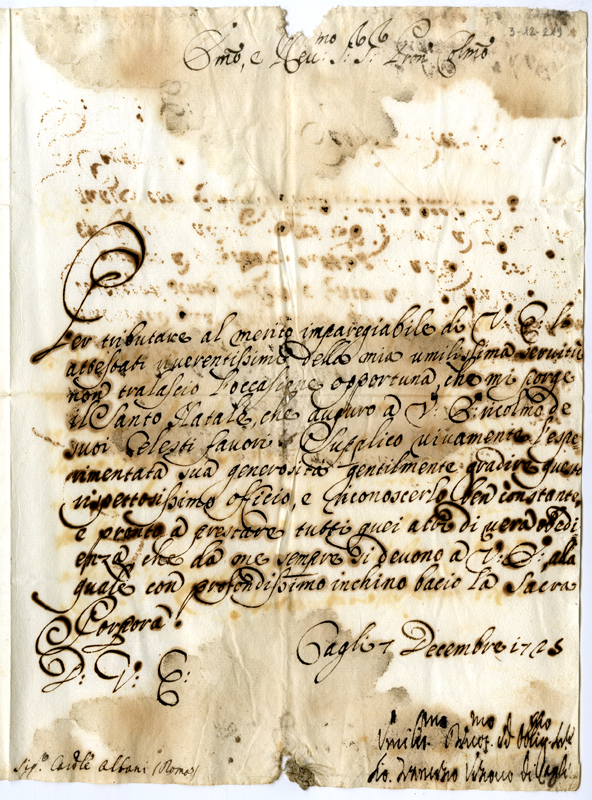 Emõ, e Reu:mo Sig: Sig: Pron Colmõ
3-12-219
Per tributare al merito impareggiabile di V: E: li
attestati riuerentissimi della mia umilissima seruitù
non tralascio l'occasione opportuna, che mi porge
il Santo Natale, che auguro à V: E: ricolmo de
suoi Celesti fauori. Suplico viuamente l'espe
rimentata sua generosità gentilmente gradire questo
rispettosissimo officio, e riconoscerlo ben constante,
e pronto à prestare tutti quei atti di uera obedi
enza, che da me sempre si deuono à V: E: alla
quale con profondissimo inchino bacio la Sacra
Porpora.
D: V: E:
Cagli 7 Decembre 1728
Umil.mo Obblig.mo
Francesco Vescouo di Cagli
Sig.r Cardle Albani (Roma)